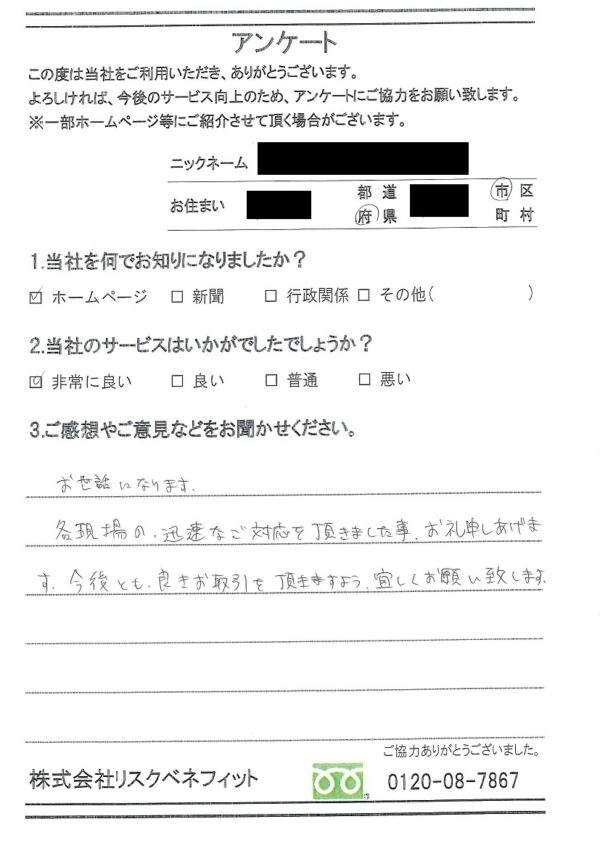 アンケート
この度は当社をご利用いただき、ありがとうございます。
よろしければ、今後のサービス向上のため、アンケートにご協力をお願い致します。
※一部ホームページ等にご紹介させて頂く場合がございます。
ニックネーム
お住まい 都 道 府 県 市 区 町 村
1.当社を何でお知りになりましたか？
☑ ホームページ □ 新聞 □ 行政関係 □ その他( )
2.当社のサービスはいかがでしたでしょうか？
☑ 非常に良い □ 良い □ 普通 □ 悪い
3.ご感想やご意見などをお聞かせください。
お世話になります.
各現場の、迅速なご対応を頂きました事、お礼申しあげま
す. 今後とも、良きお取引を頂きますよう、宜しくお願い致します.
ご協力ありがとうございました。
株式会社リスクベネフィット 0120-08-7867